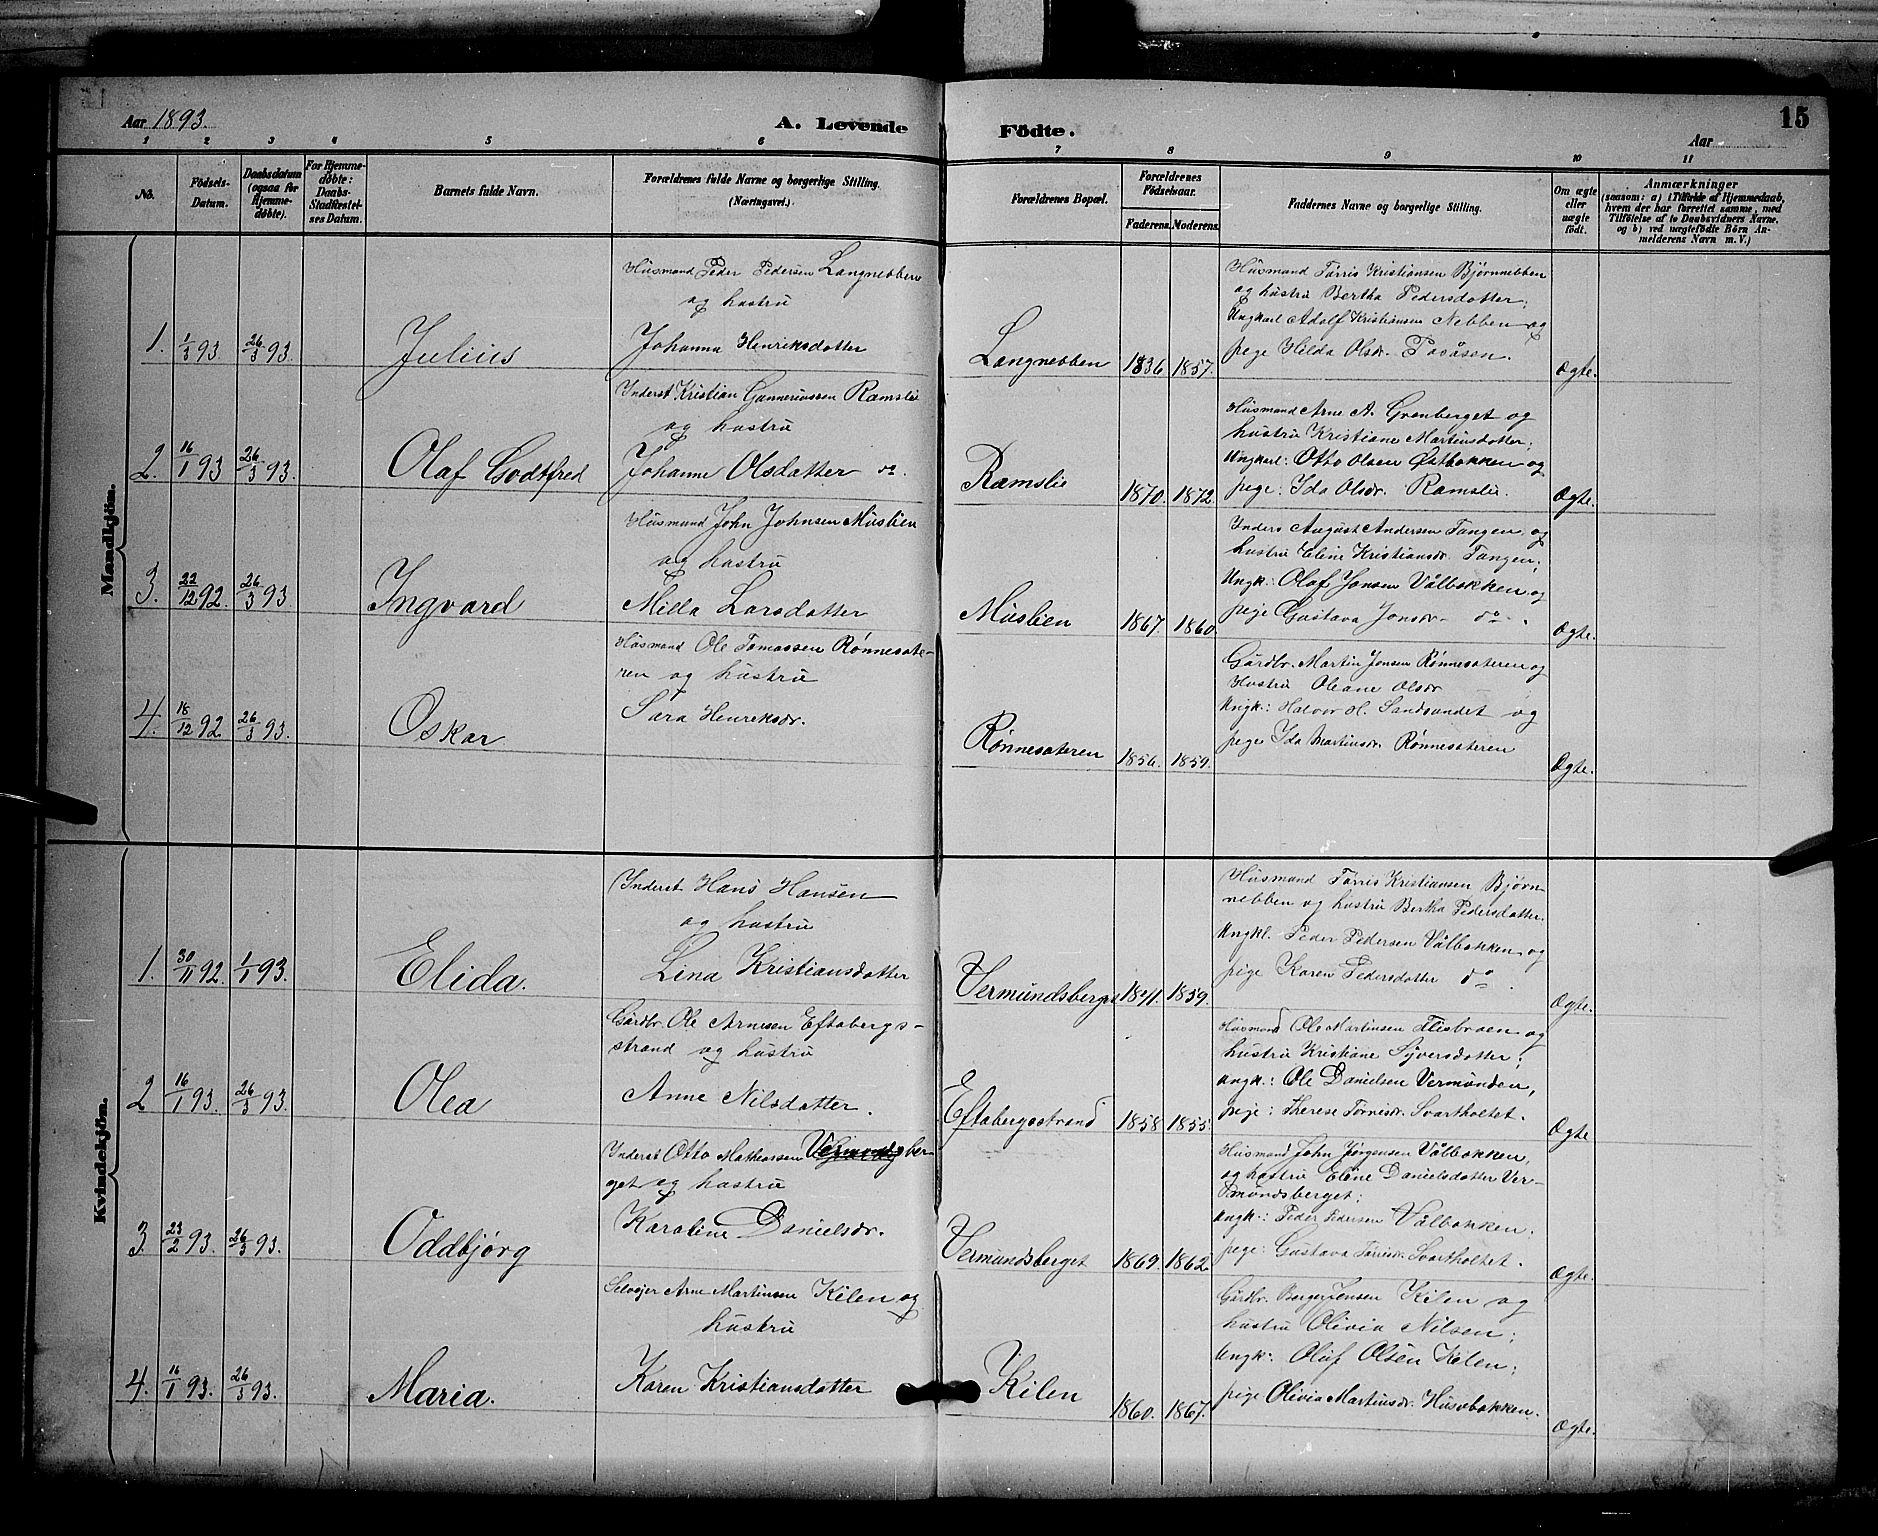 Aar 1893.
A. Levende Födte.
15
Aar
1 2 3 4 5 6 7 8 9 10 11
No.
Födsels-Datum.
Daabsdatum (ogsaa for Hjemme-döbte).
For Hjemme-döbte: Daabs-Stadfæstel-ses Datum.
Barnets fulde Navn.
Forældrenes fulde Navne og borgerlige Stilling.
(Næringsvei.)
Forældrenes Bopæl.
Forældrenes Födselsaar.
Faderens. Moderens.
Faddernes Navne og borgerlige Stilling.
Om ægte eller uægte födt.
Anmærkninger
(saasom: a) i Tilfælde af Hjemmedaab,
hvem der har forrettet samme, med
Tilföielse af to Daabsvidners Navne,
og b) ved uægtefödte Börn An-
melderens Navn m. V.)
Mandkjön.
Husmand Peder Pedersen Langnebben
og hustru
Johanna Henriksdatter
1. 1/3 93. 26/3 93. Julius
Langnebben 1836 1857.
Husmand Törris Kristiansen Bjørnnebben
og hustru Bertha Pedersdotter;
Ungkarl Adolf Kristiansen Nebben og
pige Hilda Olsdr.
Ægte.
Inderst Kristian Gunneriussen Ramslie
og hustru
Johanne Olsdatter do.
2. 16/1 93 26/3 93. Olaf Godtfred
Ramslie 1870. 1872.
Husmand Arne A. Grønberget og
hustru Kristiane Martinsdotter;
Ungkarl: Otto Olsen Østbakken og
pige: Ida Olsdr. Ramslie.
Ægte.
Husmand John Johnsen Muslien
og hustru
Milla Larsdatter
3. 22/12 92. 26/3 93 Ingvard
Muslien 1867. 1860.
Inders August Andersen Tangen og
hustru Eline Kristiansdr. Tangen;
Ungk: Olaf Jonsen Vålbakken og
pige Gustava Jonsdr. do.
Ægte.
Husmand Ole Tomassen Rønnesate-
ren og hustru
Sara Henriksdr.
4. 18/12 92. 26/3 93. Oskar
Rønnesateren 1856. 1859.
Gårdbr. Martin Jonsen Rønnesateren og
Hustru Oleane Olsdr
Ungk: Halvor H. Sandsundet og
pige Ida Martinsdr. Rønnesateren
Ægte.
Kvindekjön.
Inderst Hans Hansen
og hustru
Lina Kristiansdatter
1. 30/11 92. 1/1 93. Elida.
Vermundsberget 1841. 1859.
Husmand Törris Kristiansen Bjørn-
nebben og hustru Bertha Pedersdatter.
Ungkl. Peder Pedersen Vålbakken og
pige Karen Pedersdatter do.
Ægte.
Gårdbr. Ole Arnesen Eftabergs-
strand og hustru
Anne Nilsdatter.
2 16/1 93. 26/3 93. Olea
Eftabergsstrand 1858 1855.
Husmand Ole Martinsen Flisbraen og
hustru Kristiane Syversdatter;
ungk.: Ole Danielsen Vermunden,
pige: Therese Törrisdr. Svartholtet.
Ægte
Inderst Otto Matheassen Vermundsber-
get og hustru
Karoline Danielsdr.
3. 23/2 93. 26/3 93. Oddbjørg
Vermundsberget 1869. 1862.
Husmand John Jørgensen Vålbakken,
og hustru Eline Danielsdatter Ver-
mundsberget;
ungk.: Peder Pedersen Vålbakken.
pige: Gustava Törrisdr. Svartholtet.
Ægte.
Selvejer Arne Martinsen Kilen og
hustru
Karen Kristiansdatter
4. 16/1 93. 26/3 93. Maria.
Kilen 1860. 1867.
Gårdbr. Berger Jensen Kilen og
hustru Olivia Nilsen;
Ungk: Oluf Olsen Kilen;
pige Olivia Martinsdr. Husebakken.
Ægte.